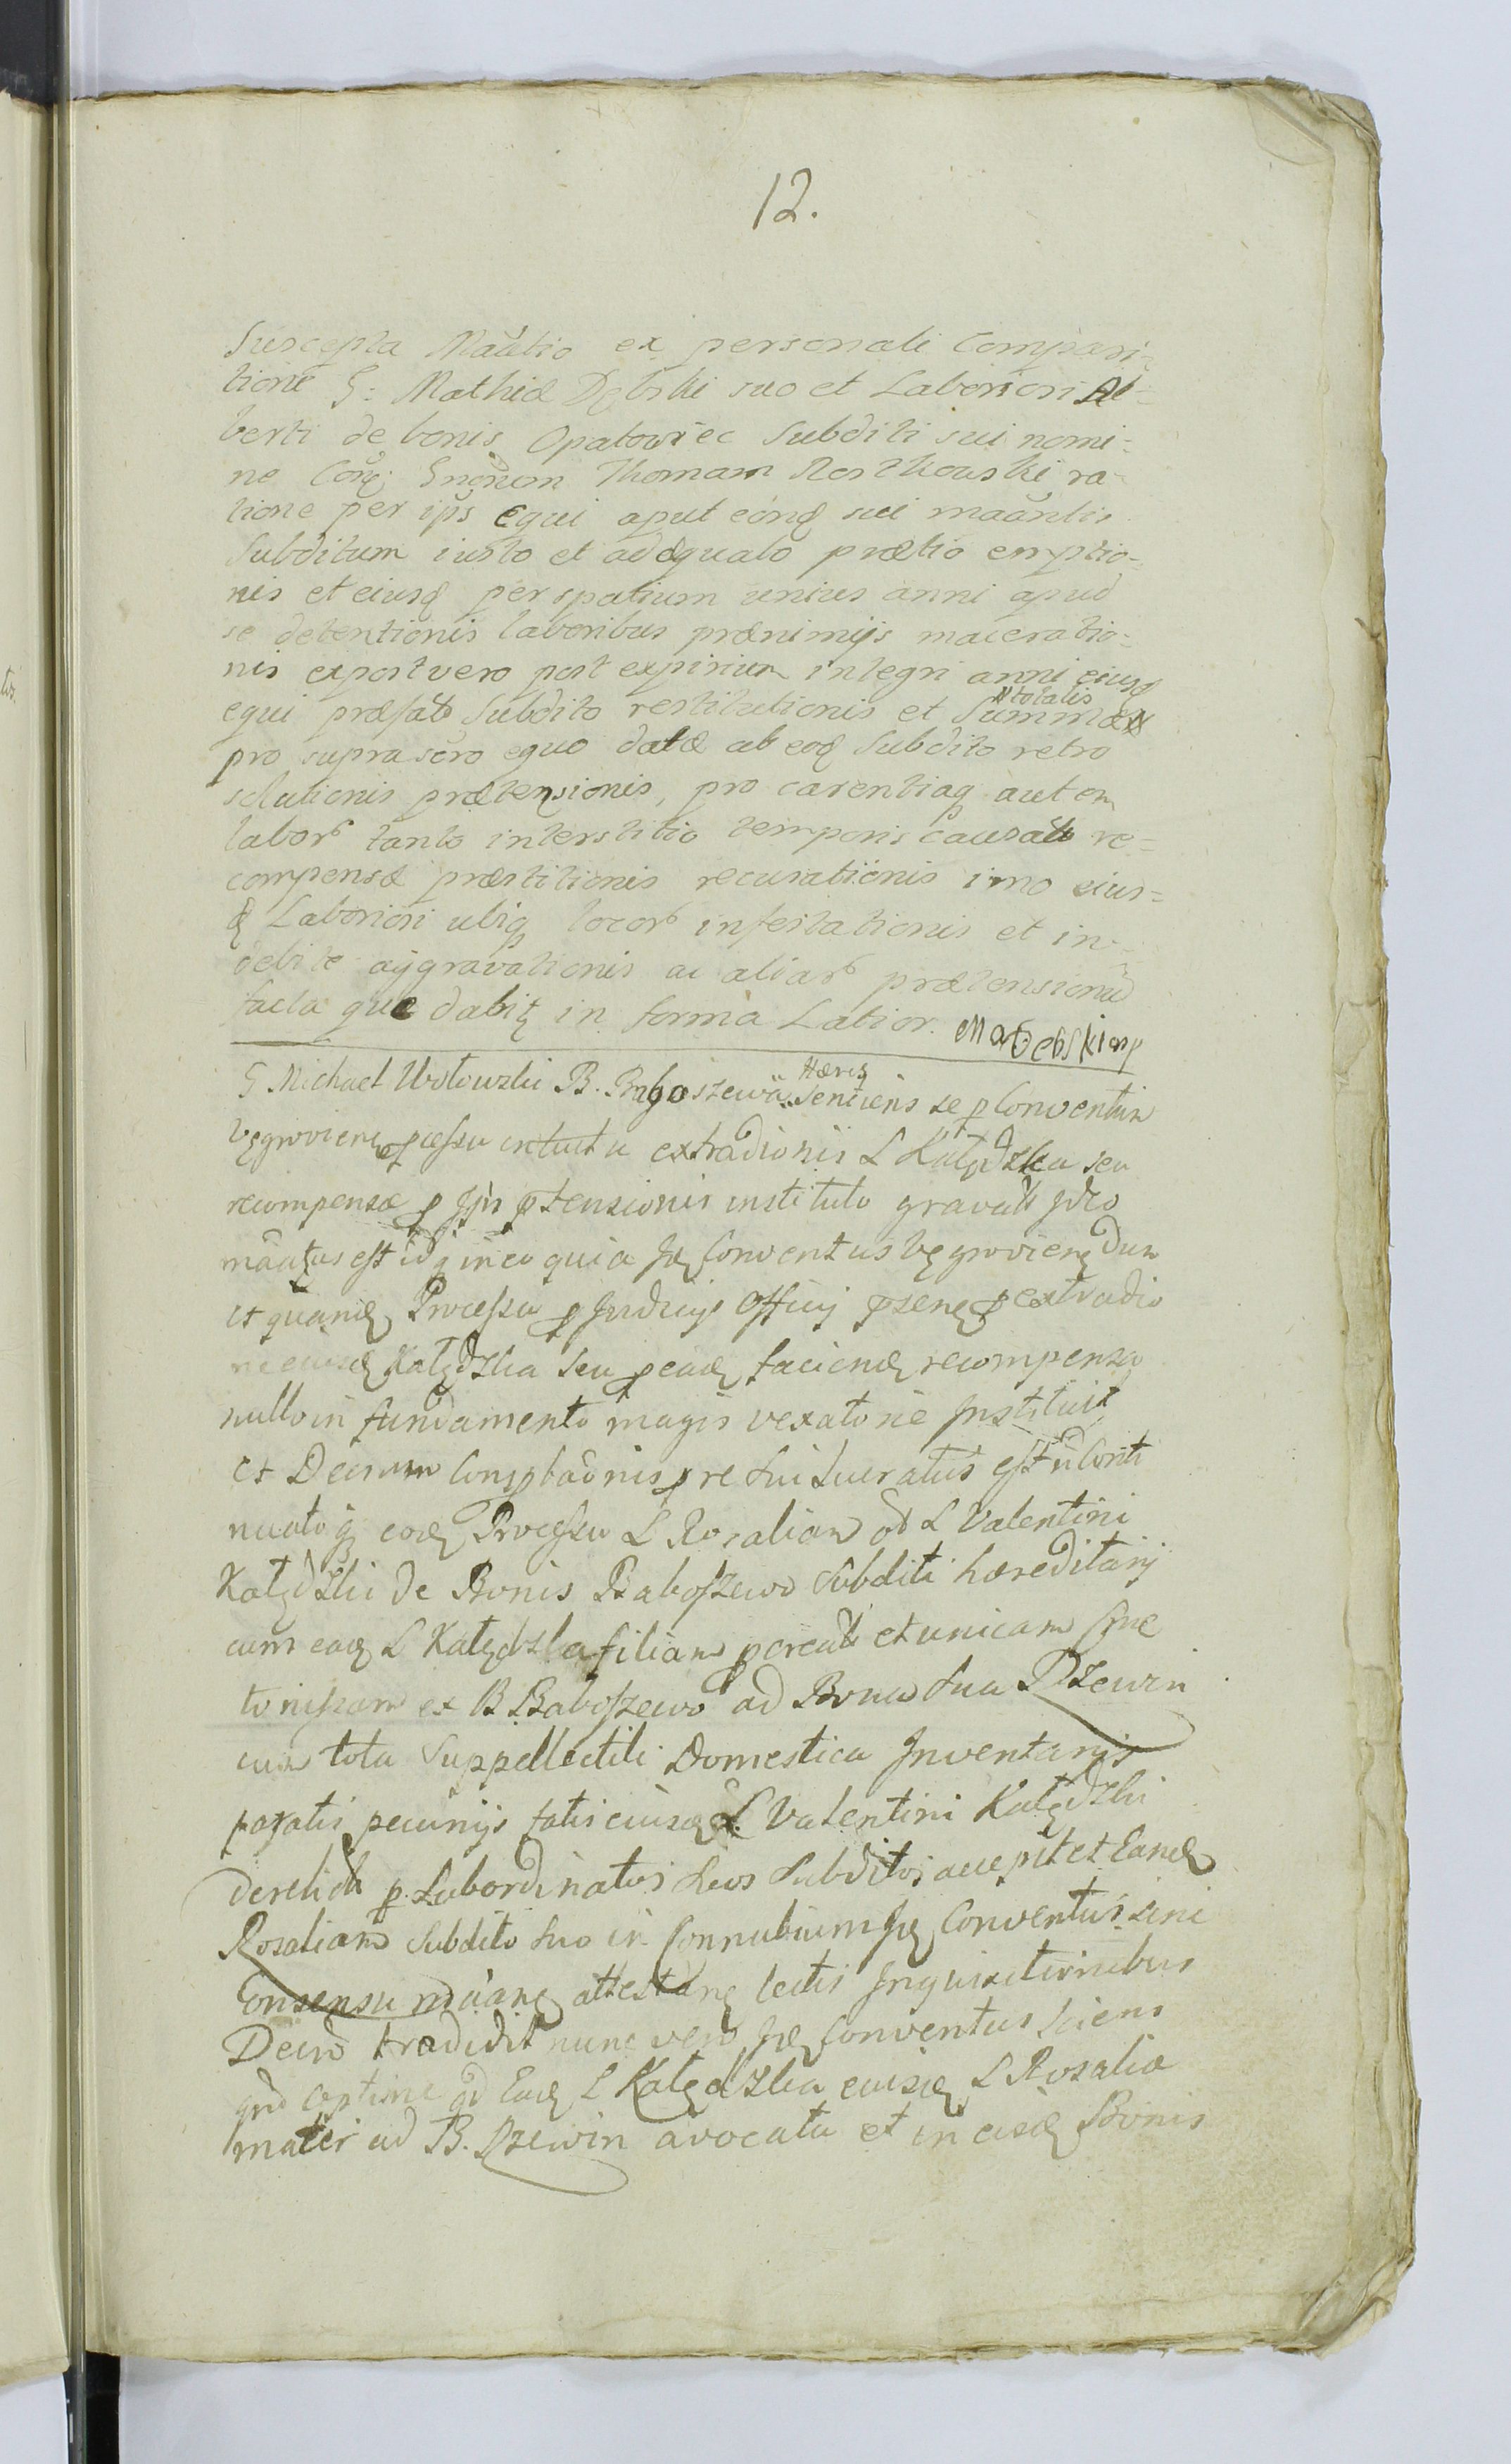 12.
Suscepta Mãñtio ex personali Compari-
tione G: Mathiæ Dębski suo et Laboriosi Al-
berti de bonis Opatowiec Subditi sui nomi-
ne Coñ: Gnosum Thomam Roszkowski ra-
tione per ips equi aput eóng sui maãntis
Subditum iusto et adæquato prætio emptio-
nis et eiusq per spatium unius anni apud
se detentionis laboribus prænimijs maceratio-
nis expost vero post expirium integri anni eiusq
totalis
equi præfato Subdito restitutionis et Summæ
pro supra scro equo datæ ab eoq Subdito retro
solutionis prætensionis, pro carentiaq autem
labor tanto interstitio temporis causata re-
compensæ præstitionis recusationis imo eius-
q Laboriosi ubiq locor infestationis et in-
debite aggravationis ac aliar prætensionu
facta que dabit in forma Latior. MaDębski mp
Hæres
G Michael Wołowski B. Baboszewa Sentiens se p Conventum
processu intuitu extradionis L Kałędzka seu
recompensæ p ptensionis instituto gravari Ideo
est id in eo quia Conventus dum
et quanq Processu p Judicijs Officij extradio
ne eiusq Kałędzka seu p eadq facienq recompensa
nullo in fundamento magis vexatorie Instituit
et Decrum p re sui lucratus est
nuatoq eoq Processu L Rosaliam L Valentini
Kałędzki de Bonis Baboszewo Subditi hæreditarij
cum eaq L Kałędzka filiam pcreatã et unicam
ex B Baboszewo ad Bona sua Dzewin
cum tota Suppellectili Domestica Inventarijs
paratis pecunijs eiusq L Valentini Kałędzki
derelicta p Subordinatos suos Subditos accepit et Eanq
Rosaliam Subdito suo in Connubium Conventus sine
Consensu attestang lectis Inquisitionibus
Decro tradidit nunc vero Conventus sciens
Eaq L Kałędzka eiusq L Rosaliæ
mater ad B. Dzewin avocata et in eisq Bonis